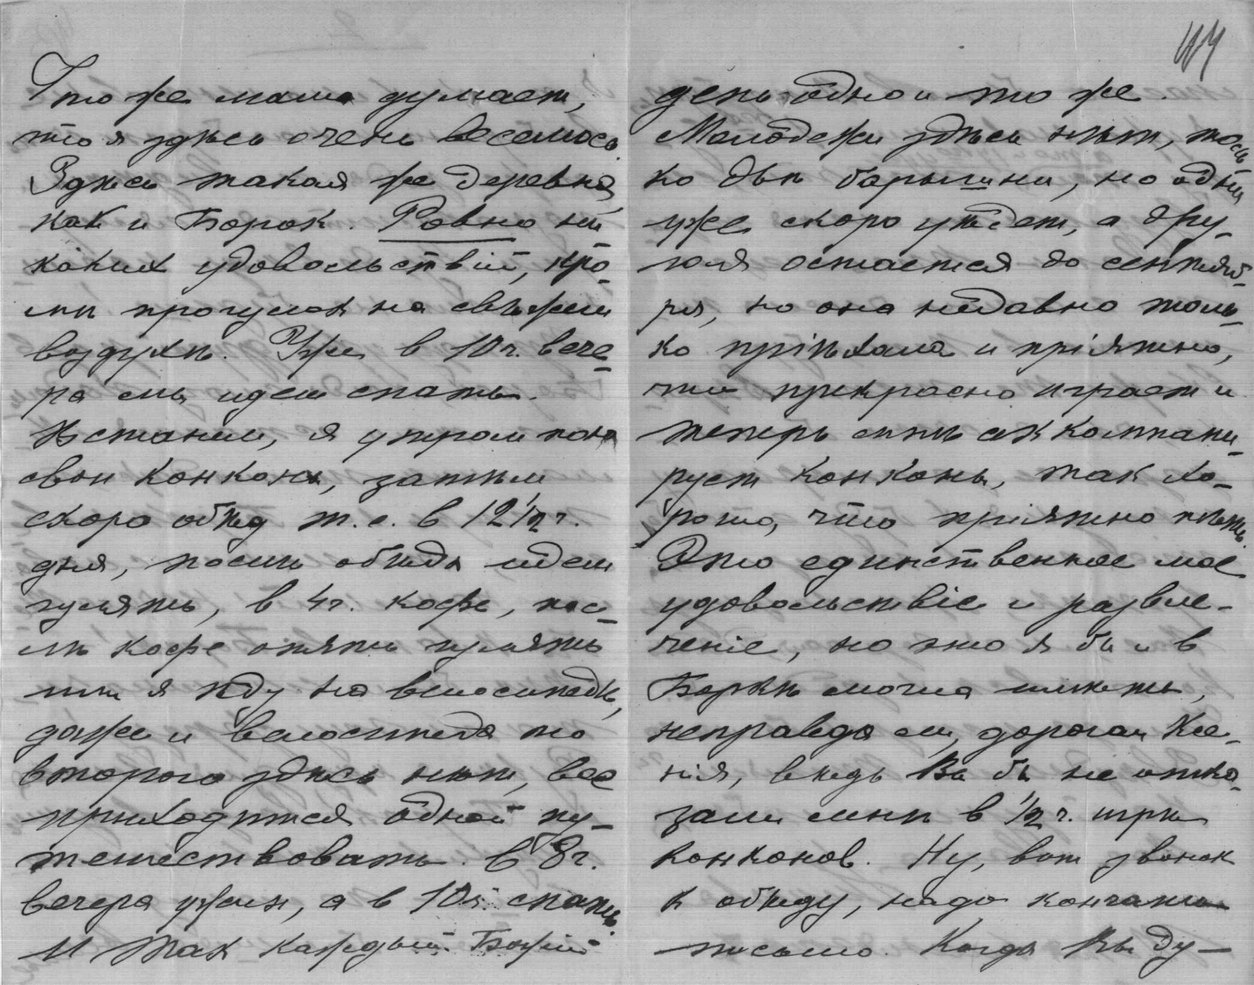 Что же мама думает,
что я здѣсь очень веселюсь.
Здѣсь такая же деревня,
как и Борок. Ровно ни-
каких удовольствій, кро-
мѣ прогулок на свѣжем
воздухѣ. Уже в 10 ч. вече-
ра мы идем спать.
Встанем, я утром пою
свои канконы, затѣм
скоро обѣд т. е. в 12 1/2 ч.
дня, послѣ обѣда идем
гулять, в 4 ч. кофе, пос-
лѣ кофе опять гулять
или я ѣду на велосипедѣ,
даже и велосипеда то
второго здѣсь нѣт, все
приходится одной пу-
тешествовать. В 8 ч.
вечера ужин, а в 10 ч. спать.
И так каждый Божій
144
день одно и то же.
Молодежи здѣсь нѣт, толь-
ко двѣ барышни, но одна
уже скоро уѣдет, а дру-
гая остается до сентяб-
ря, но она недавно толь-
ко пріѣхала и пріятно,
что прекрасно играет и
теперь мнѣ аккомпани-
рует канконы, так хо-
рошо, что пріятно пѣть.
Это единственное мое
удовольствіе и развле-
ченіе, но это я бы и в
Боркѣ могла имѣть,
неправда ли, дорогая Ксе-
нія, вѣдь Вы бы не отка-
зали мнѣ в 1/2 ч. игры
канконов. Ну, вот звонок
к обѣду, надо кончать
письмо. Когда Вы ду-